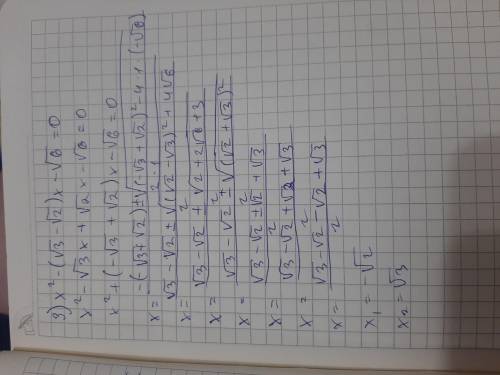 3) x² - (√3 - √2)x - √6 = 0
x² - √3x + √2x - √6 = 0
x² + (-√3 + √2)x - √6 = 0
x = -(-√3+√2) ± √(-√3 + √2)² - 4·1·(-√6) / 2·1
x = √3 - √2 ± √(√2 - √3)² + 4√6 / 2
x = √3 - √2 ± √2 + 2√6 + 3 / 2
x = √3 - √2 ± √(√2 + √3)² / 2
x = √3 - √2 ± √2 + √3 / 2
x = √3 - √2 + √2 + √3 / 2
x = √3 - √2 - √2 + √3 / 2
x₁ = -√2
x₂ = √3